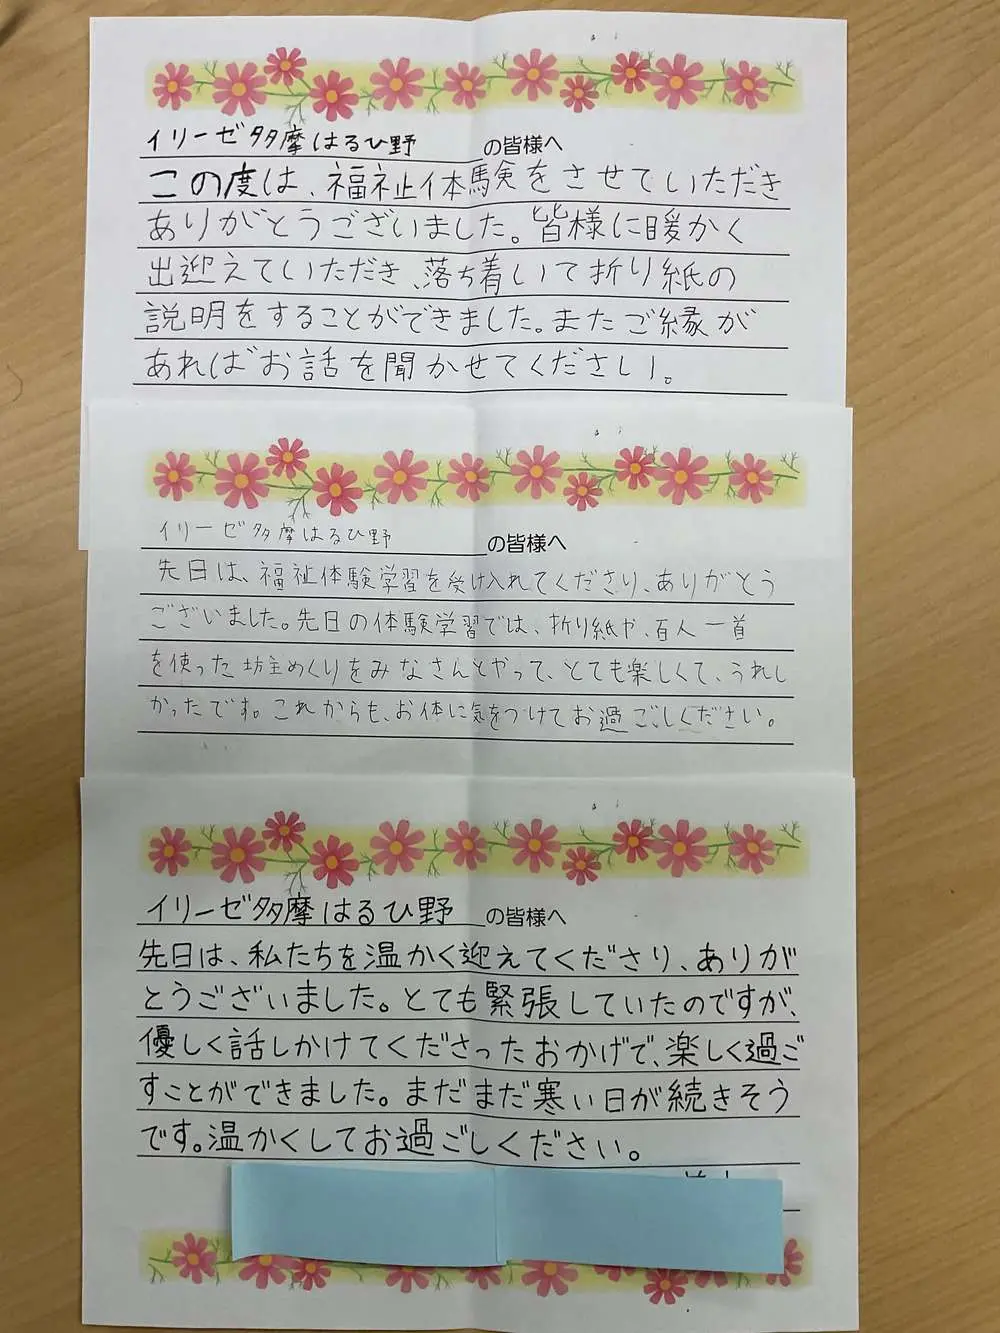 イリーゼ多摩はるひ野の皆様へ
この度は、福祉体験をさせていただき
ありがとうございました。皆様に暖かく
出迎えていただき、落ち着いて折り紙の
説明をすることができました。またご縁が
あればお話を聞かせてください。
イリーゼ多摩はるひ野の皆様へ
先日は、福祉体験学習を受け入れてくださり、ありがとう
ございました。先日の体験学習では、折り紙や、百人一首
を使った坊主めくりをみなさんとやって、とても楽しくて、うれし
かったです。これからも、お体に気をつけてお過ごしください。
イリーゼ多摩はるひ野の皆様へ
先日は、私たちを温かく迎えてくださり、ありが
とうございました。とても緊張していたのですが、
優しく話しかけてくださったおかげで、楽しく過ご
すことができました。まだまだ寒い日が続きそう
です。温かくしてお過ごしください。